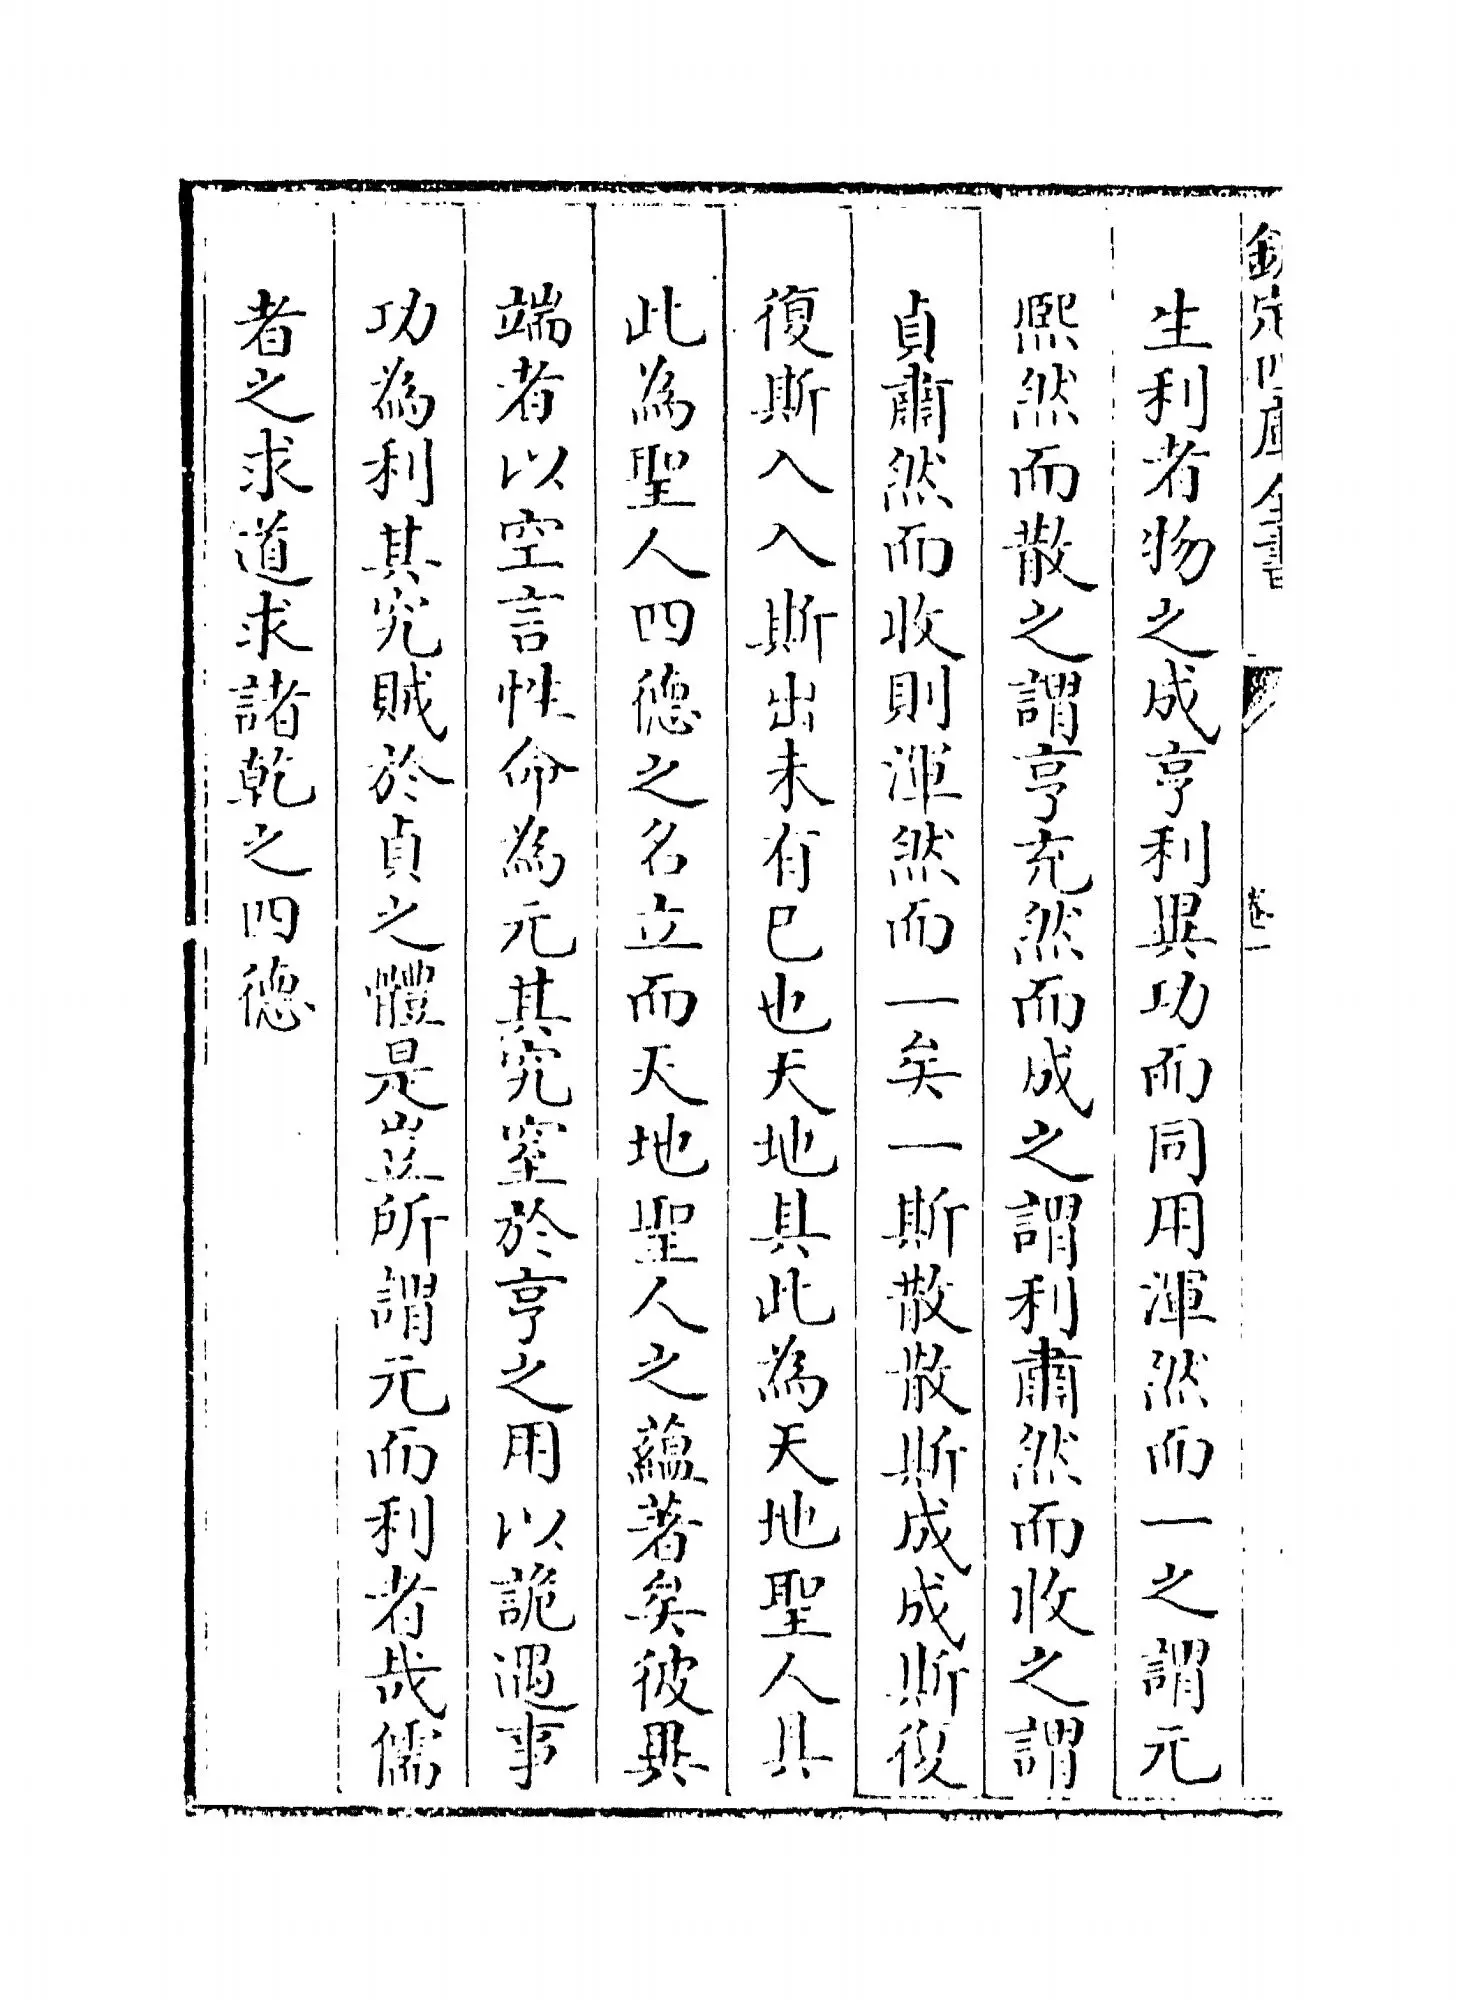 欽定四庫全書
卷一
生利者物之成亨利異功而同用渾然而一之謂元
熙然而散之謂亨充然而成之謂利肅然而收之謂
貞肅然而收則渾然而一矣一斯散散斯成成斯復
復斯入入斯出未有已也天地具此為天地聖人具
此為聖人四德之名立而天地聖人之蘊著矣彼異
端者以空言性命為元其究窒於亨之用以詭遇事
功為利其究賊於貞之體是豈所謂元而利者哉儒
者之求道求諸乾之四德